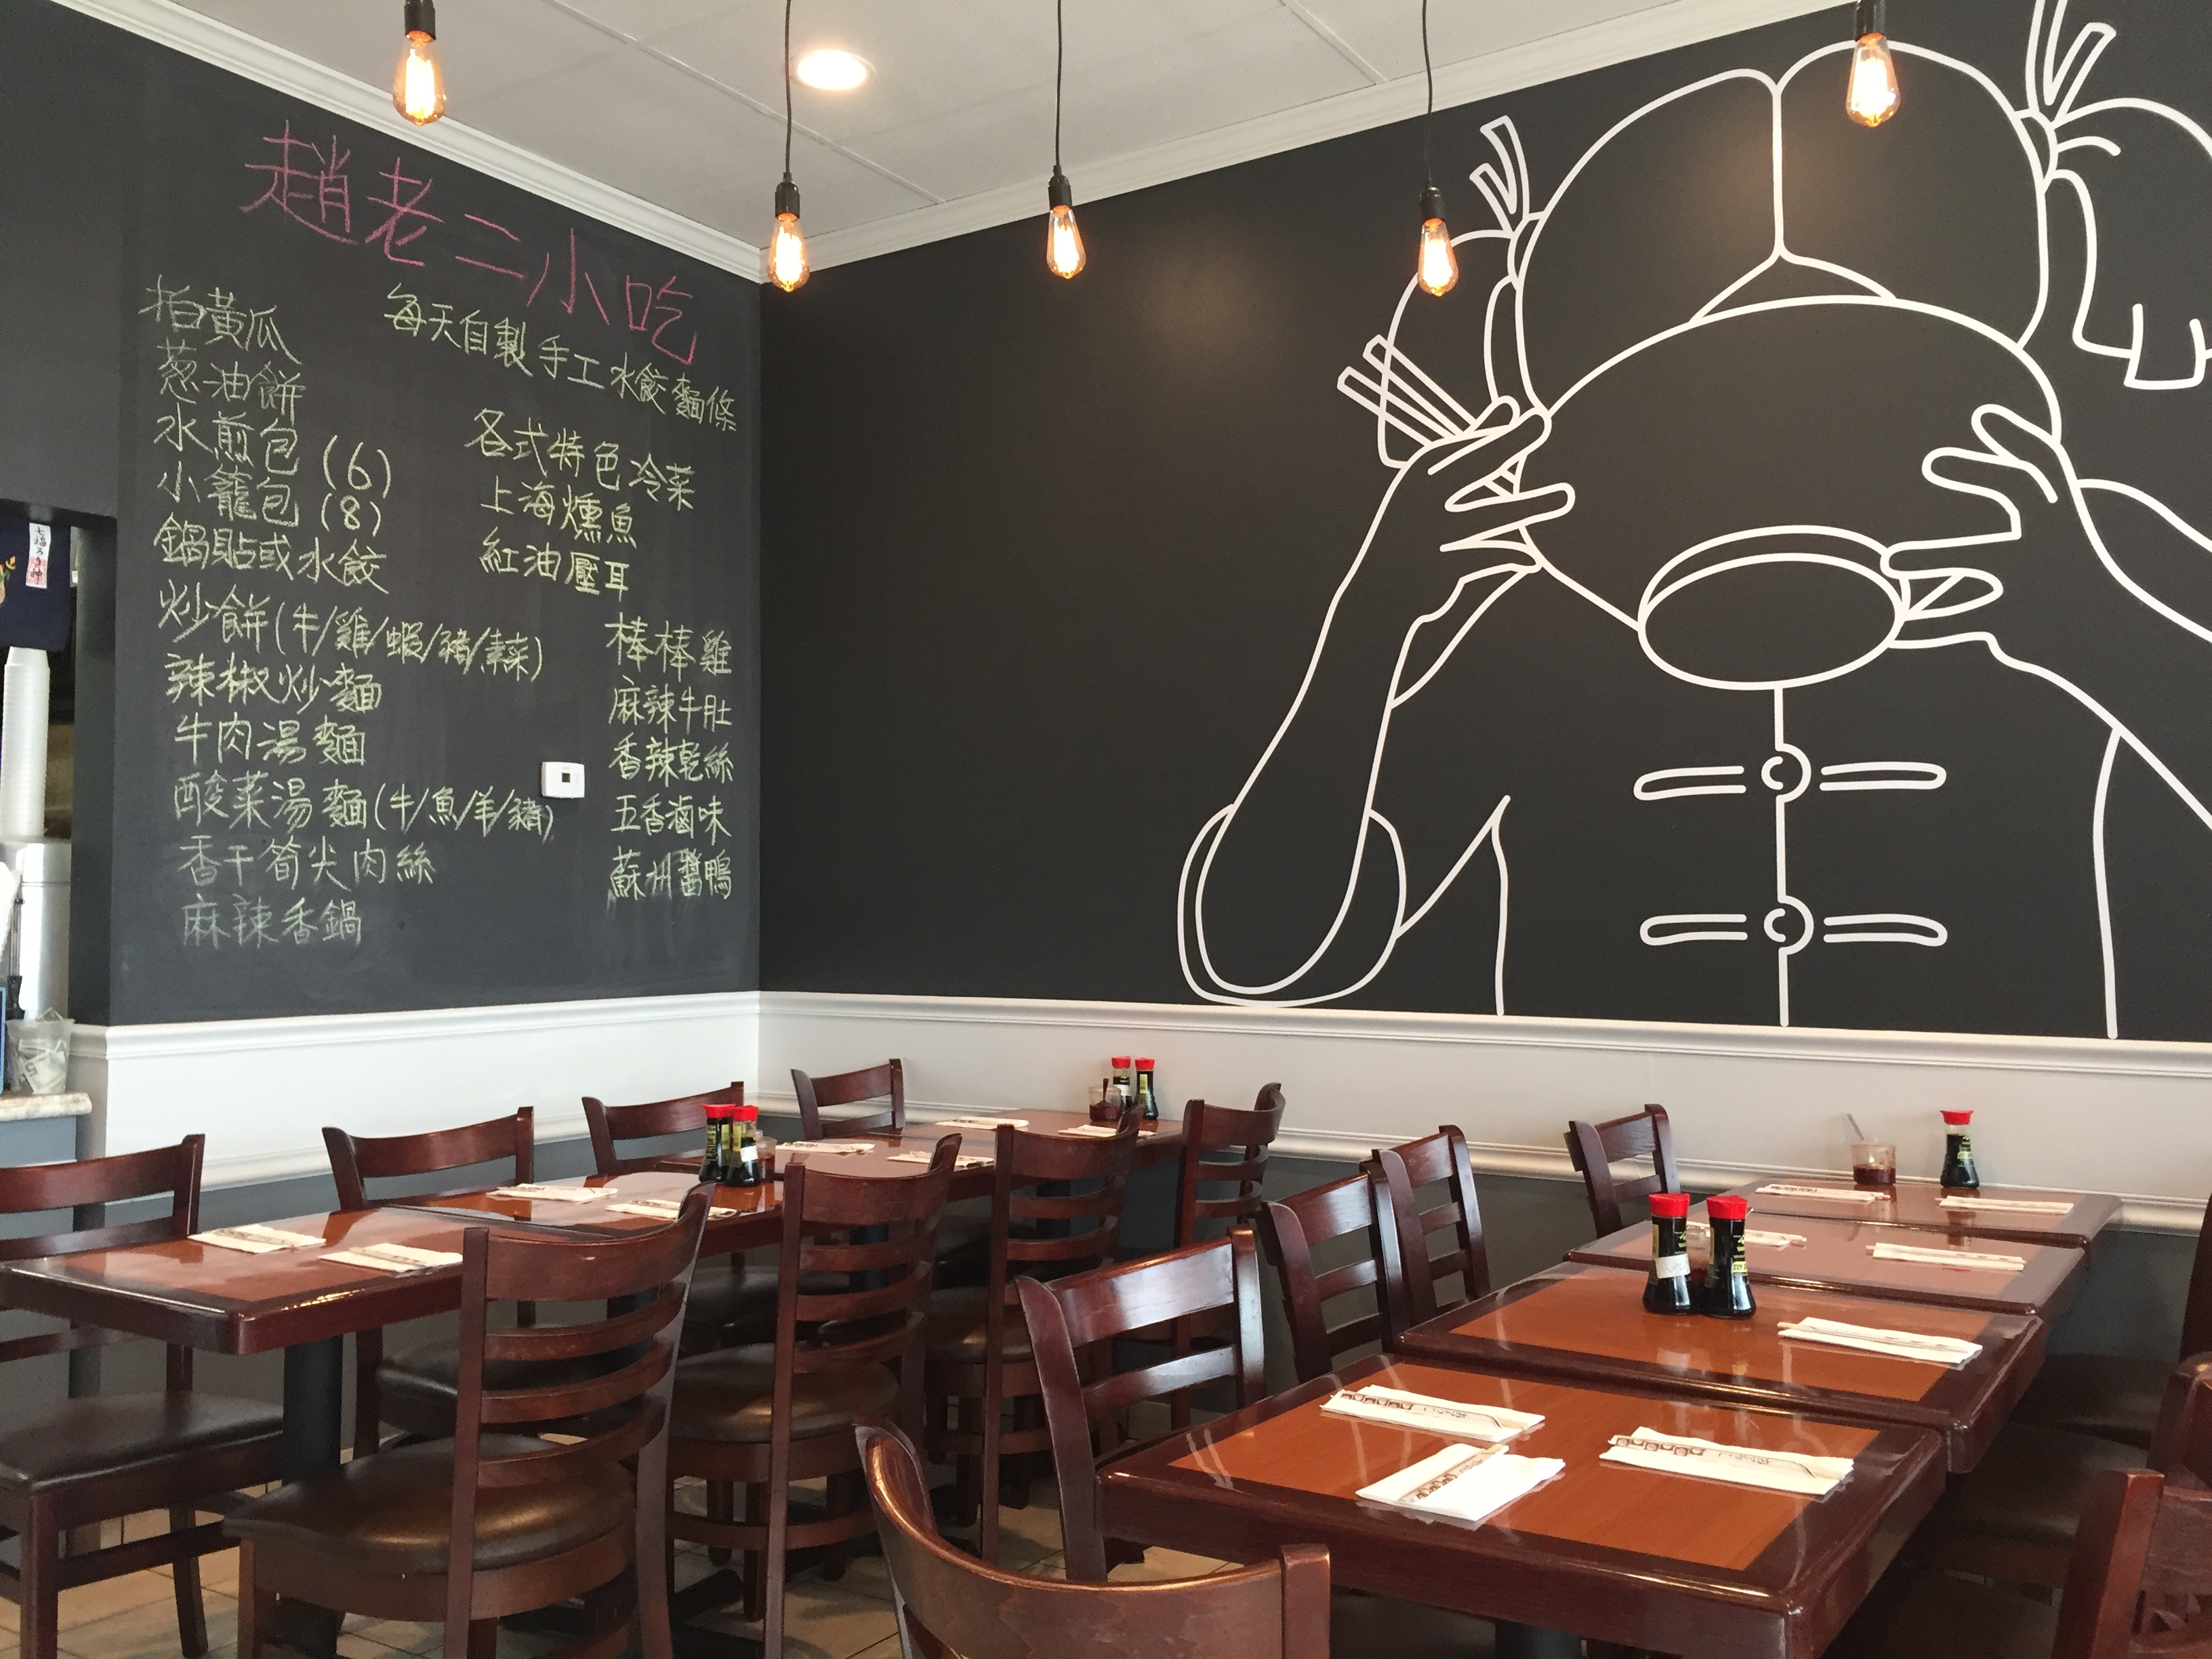 趙老二小吃
每天自製手工水餃麵條
拍黃瓜
葱油餅
水煎包(6)
小籠包(8)
鍋貼或水餃
炒餅(牛/雞/蝦/豬/素菜)
辣椒炒麵
牛肉湯麵
酸菜湯麵(牛/魚/羊/豬)
香干筍尖肉絲
麻辣香鍋
各式特色冷菜
上海燻魚
紅油壓耳
棒棒雞
麻辣牛肚
香辣乾絲
五香滷味
蘇州醬鴨